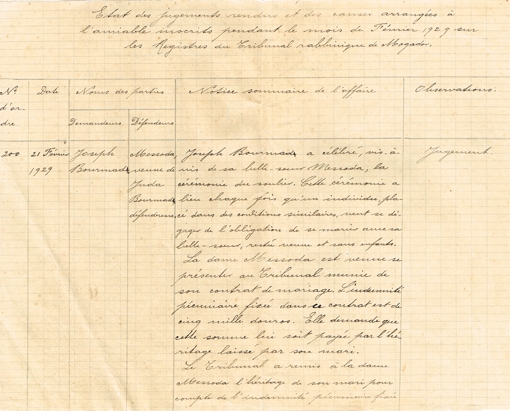 Etat des jugements rendus et des causes arrangées à
l'amiable inscrits pendant le mois de Février 1929 sur
les Registres du Tribunal rabbinique de Mogador.
N°
d'or
dre
Date
Noms des parties
Demandeurs
Défendeurs
Notice sommaire de l'affaire
Observations.
200
21 Février
1929
Joseph
Bourmad
Messoda,
veuve de
Juda
Bourmad
défenderesse
Joseph Bourmad a célébré, vis-à-
vis de sa belle-sœur Messoda, la
cérémonie du soulier. Cette cérémonie a
lieu chaque fois qu'un individu, pla-
cé dans des conditions similaires, veut se dé-
gager de l'obligation de se marier avec sa
belle-sœur, restée veuve et sans enfants.
La dame Messoda est venue se
présenter au Tribunal munie de
son contrat de mariage. L'indemnité
pécuniaire fixée dans ce contrat est de
cinq mille douros. Elle demande que
cette somme lui soit payée par l'hé-
ritage laissé par son mari.
Le Tribunal a remis à la dame
Messoda l'héritage de son mari pour
compte de l'indemnité pécuniaire fixée
Jugement